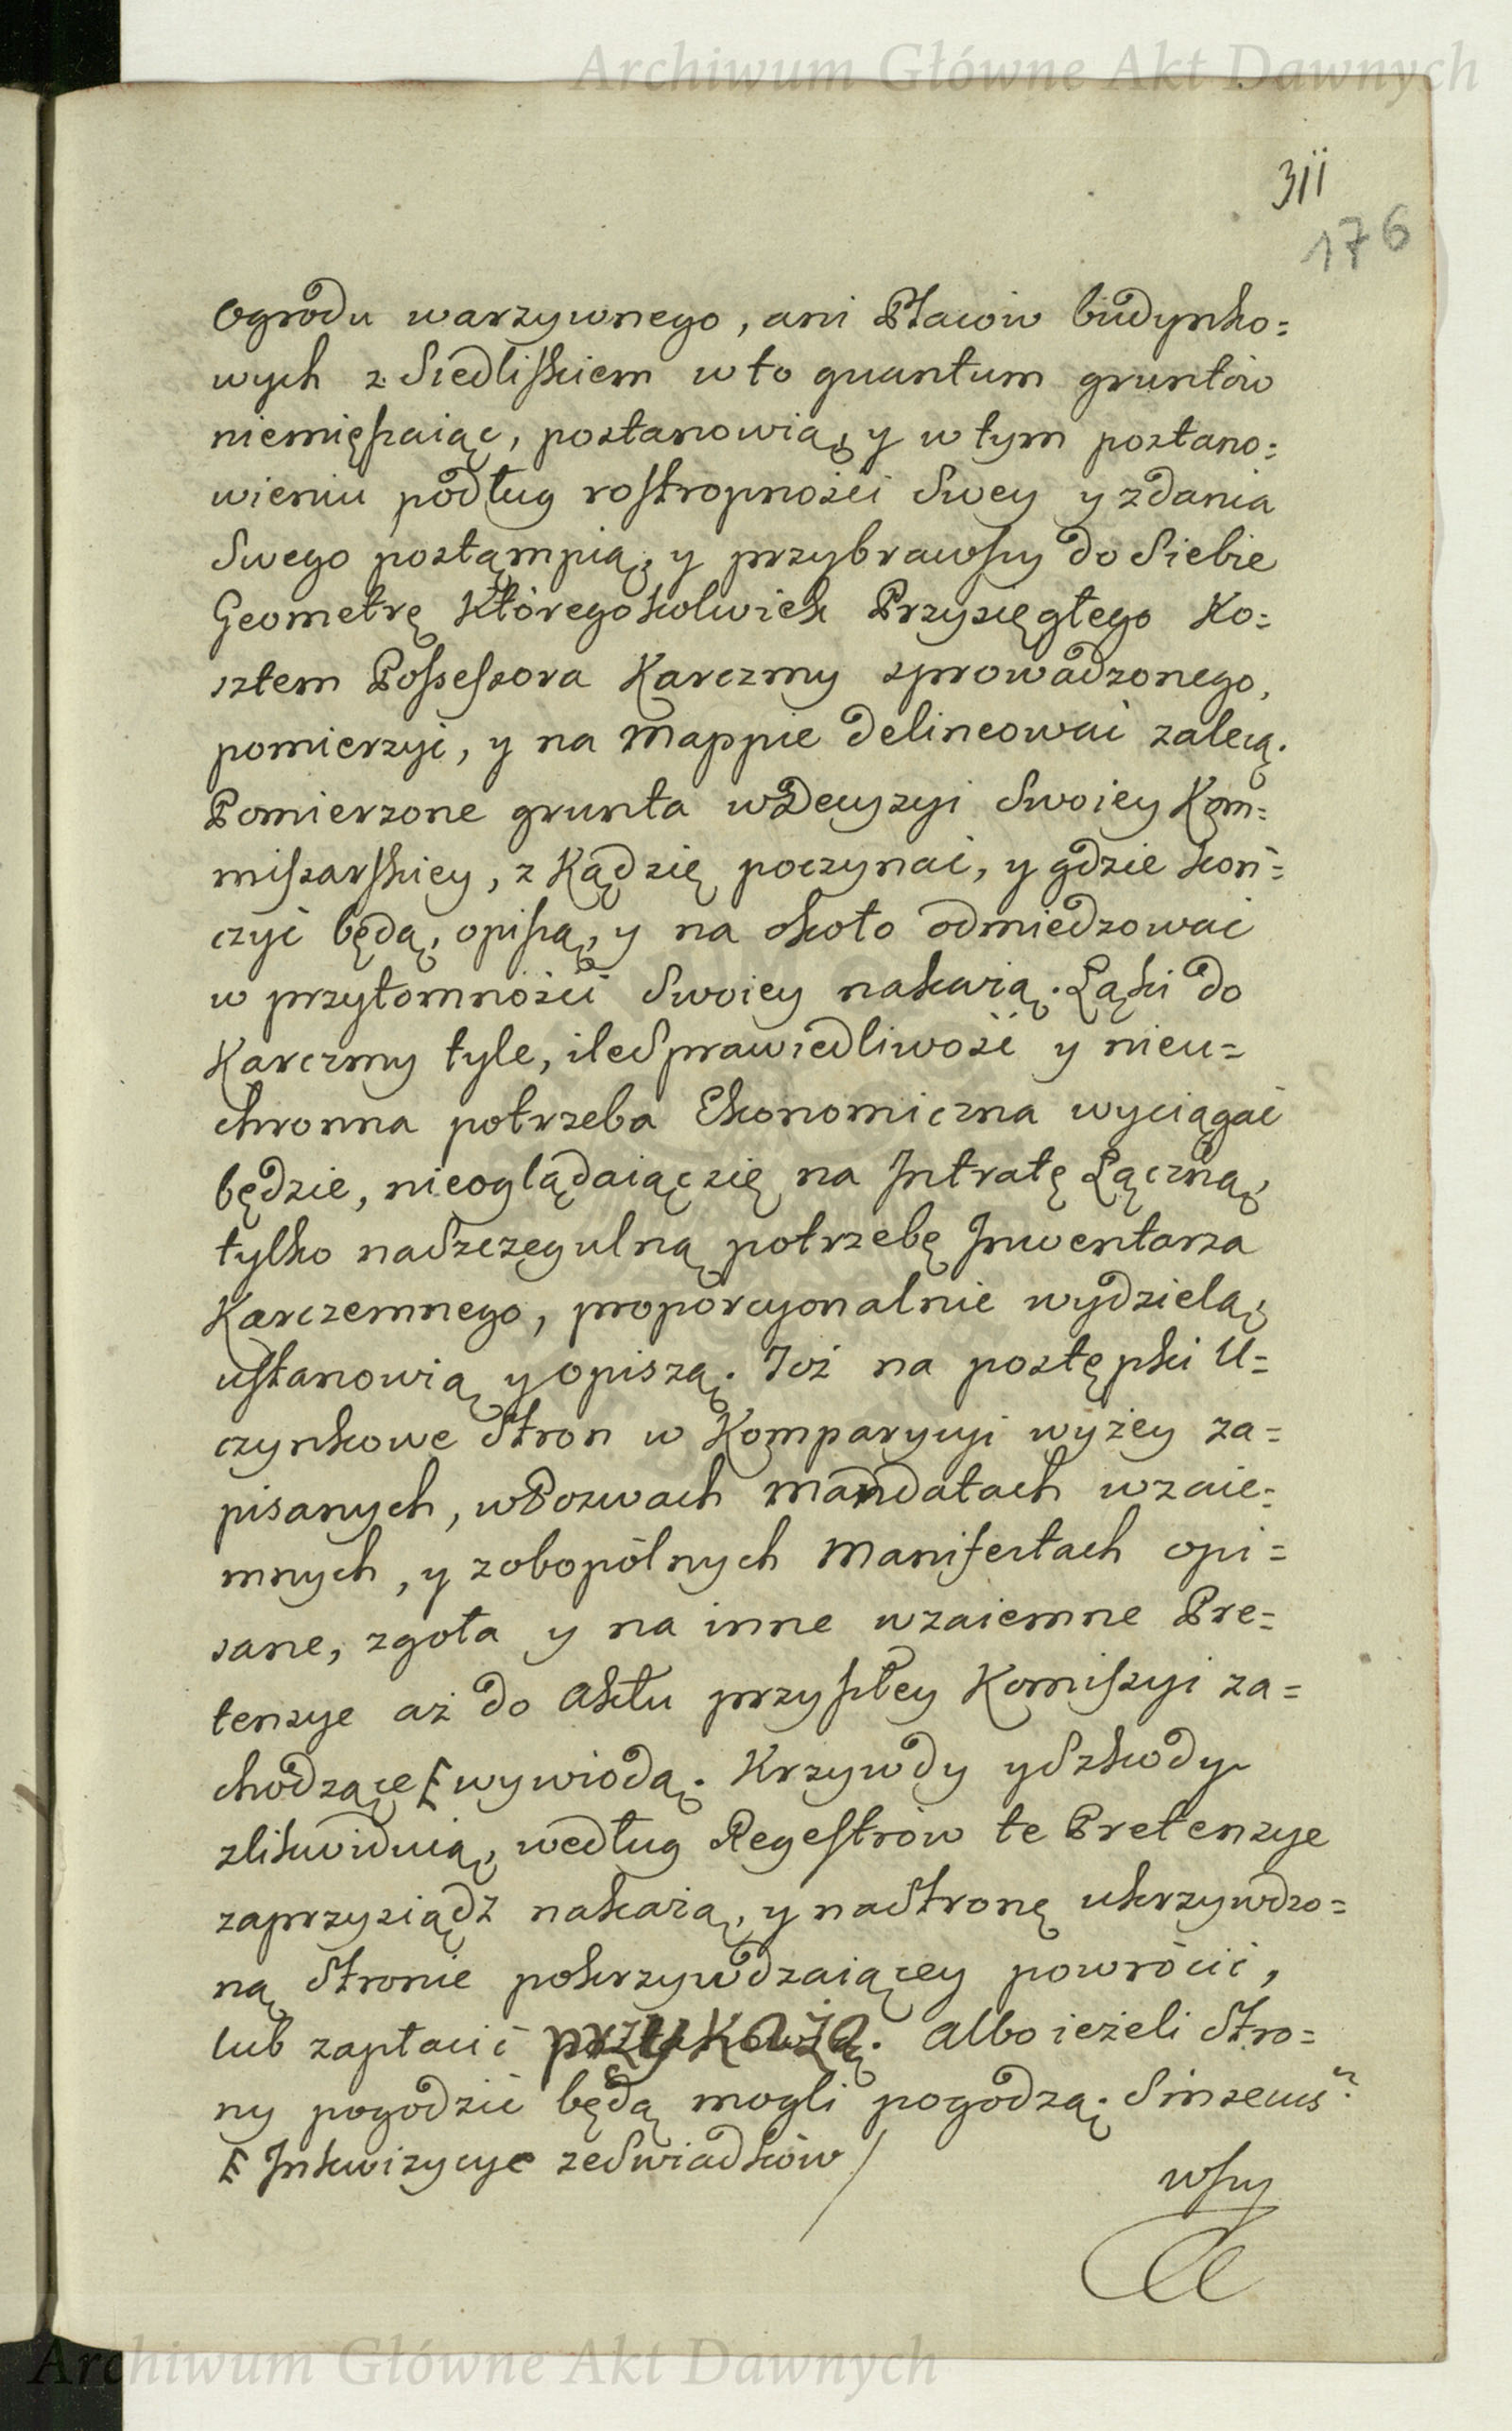 Archiwum Główne Akt Dawnych
311
176
Ogrodu warzywnego, ani Placów budynko=
wych z Siedliskiem w to quantum gruntów
niemięszaiąc, postanowią, y w tym postano=
wieniu podług rostropności Swey y zdania
Swego postąmpią, y przybrawszy do Siebie
Geometrę Któregokolwiek Przysięgłego Ko=
sztem Possessora Karczmy sprowadzonego,
pomierzyć, y na Mappie delineować zalecą.
Pomierzone grunta w Decyzyi Swoiey Kom=
missarskiey, z Kąd się poczynać, y gdzie koń=
czyć będą, opiszą, y na około odmiedzować
w przytomności Swoiey nakażą. Łąki do
Karczmy tyle, ile Sprawiedliwość y nieu=
chronna potrzeba Ekonomiczna wyciągać
będzie, nieoglądaiąc się na Intratę Łączną,
tylko na Szczegulną potrzebę Inwentarza
Karczemnego, proporcyonalnie wydzielą,
ustanowią y opiszą. Toż na postępki U=
czynkowe Stron w Komparycyi wyżey za=
pisanych, w Pozwach Mandatach wzaie=
mnych, y zobopólnych Manifestach opi=
sane, zgoła y na inne wzaiemne Pre=
tensye aż do Aktu przyszłey Komissyi za=
chodzące F wywiodą. Krzywdy y Szkody
zlikwiduią, według Regestrów te Pretensye
zaprzysiądz nakażą, y na Stronę ukrzywdzo=
ną Stronie pokrzywdzaiącey powrócić,
lub zapłacić przykażą. Albo ieżeli Stro=
ny pogodzić będą mogli pogodzą. Sin secus
F Inkwizycye ze Swiadków /
wszy
Archiwum Główne Akt Dawnych